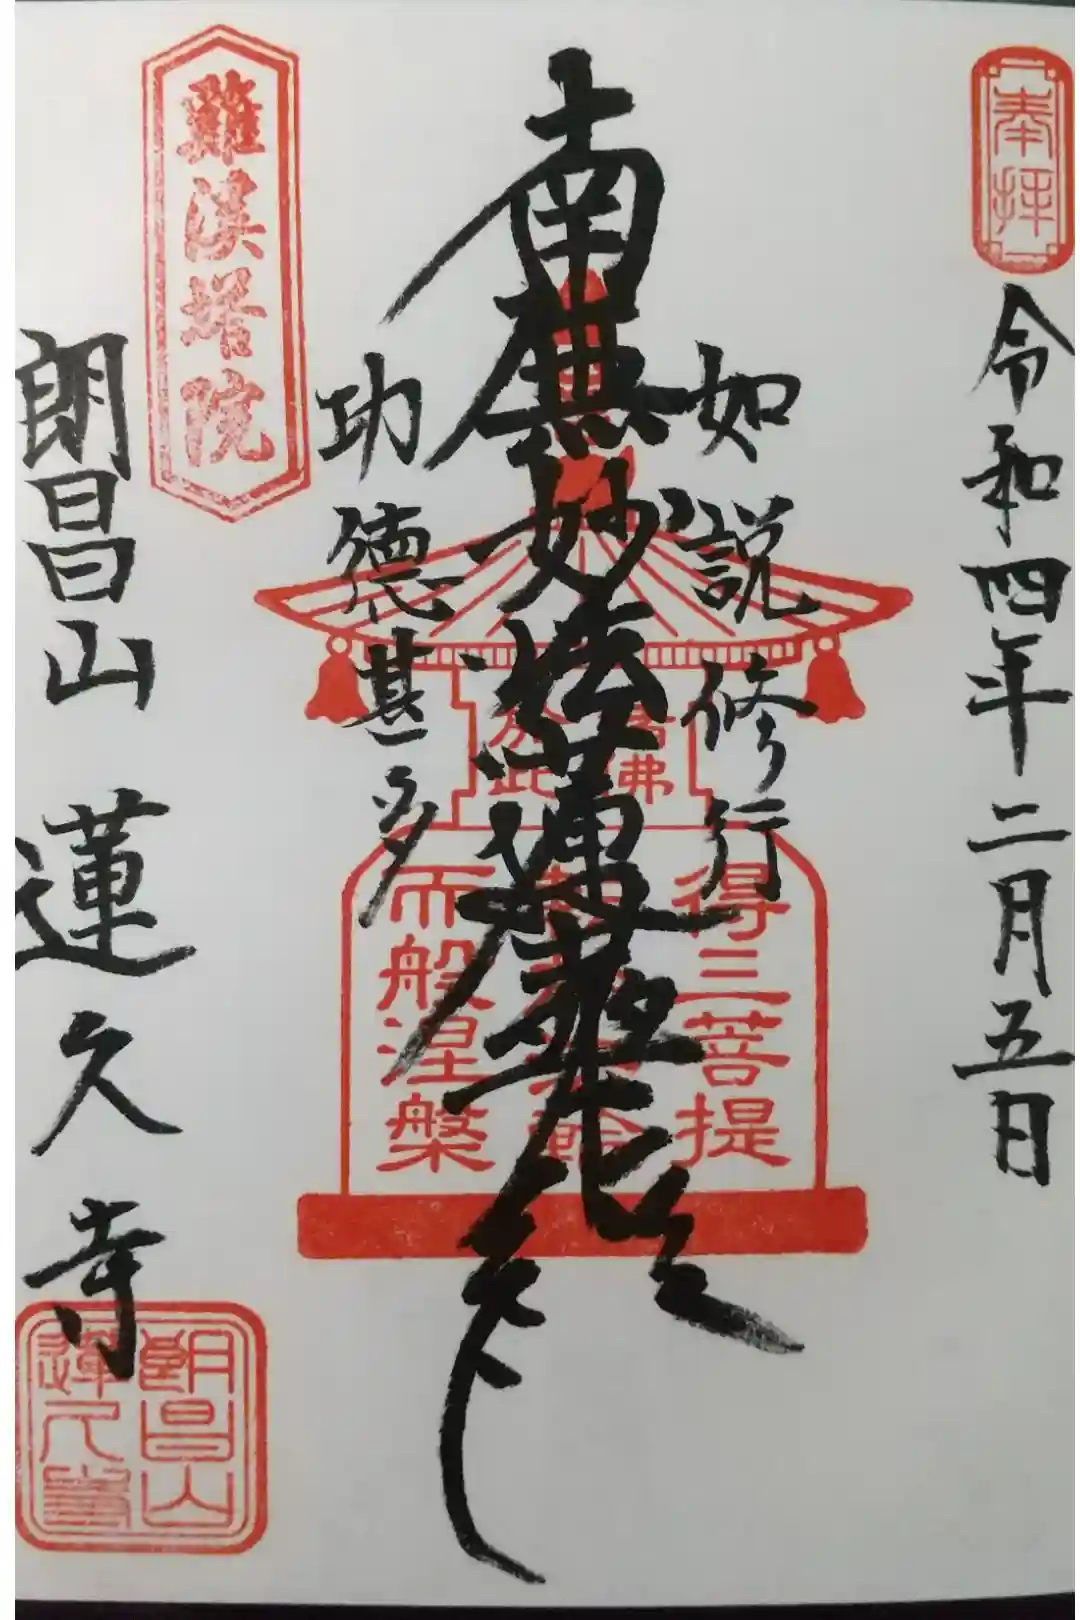 奉拝
令和四年二月五日
如説修行
南無妙法蓮華経
功徳甚多
諸佛
於此
得三菩提
轉法輪
而般涅槃
雞渓塔院
朗昌山 蓮久寺
朗昌山
蓮久寺